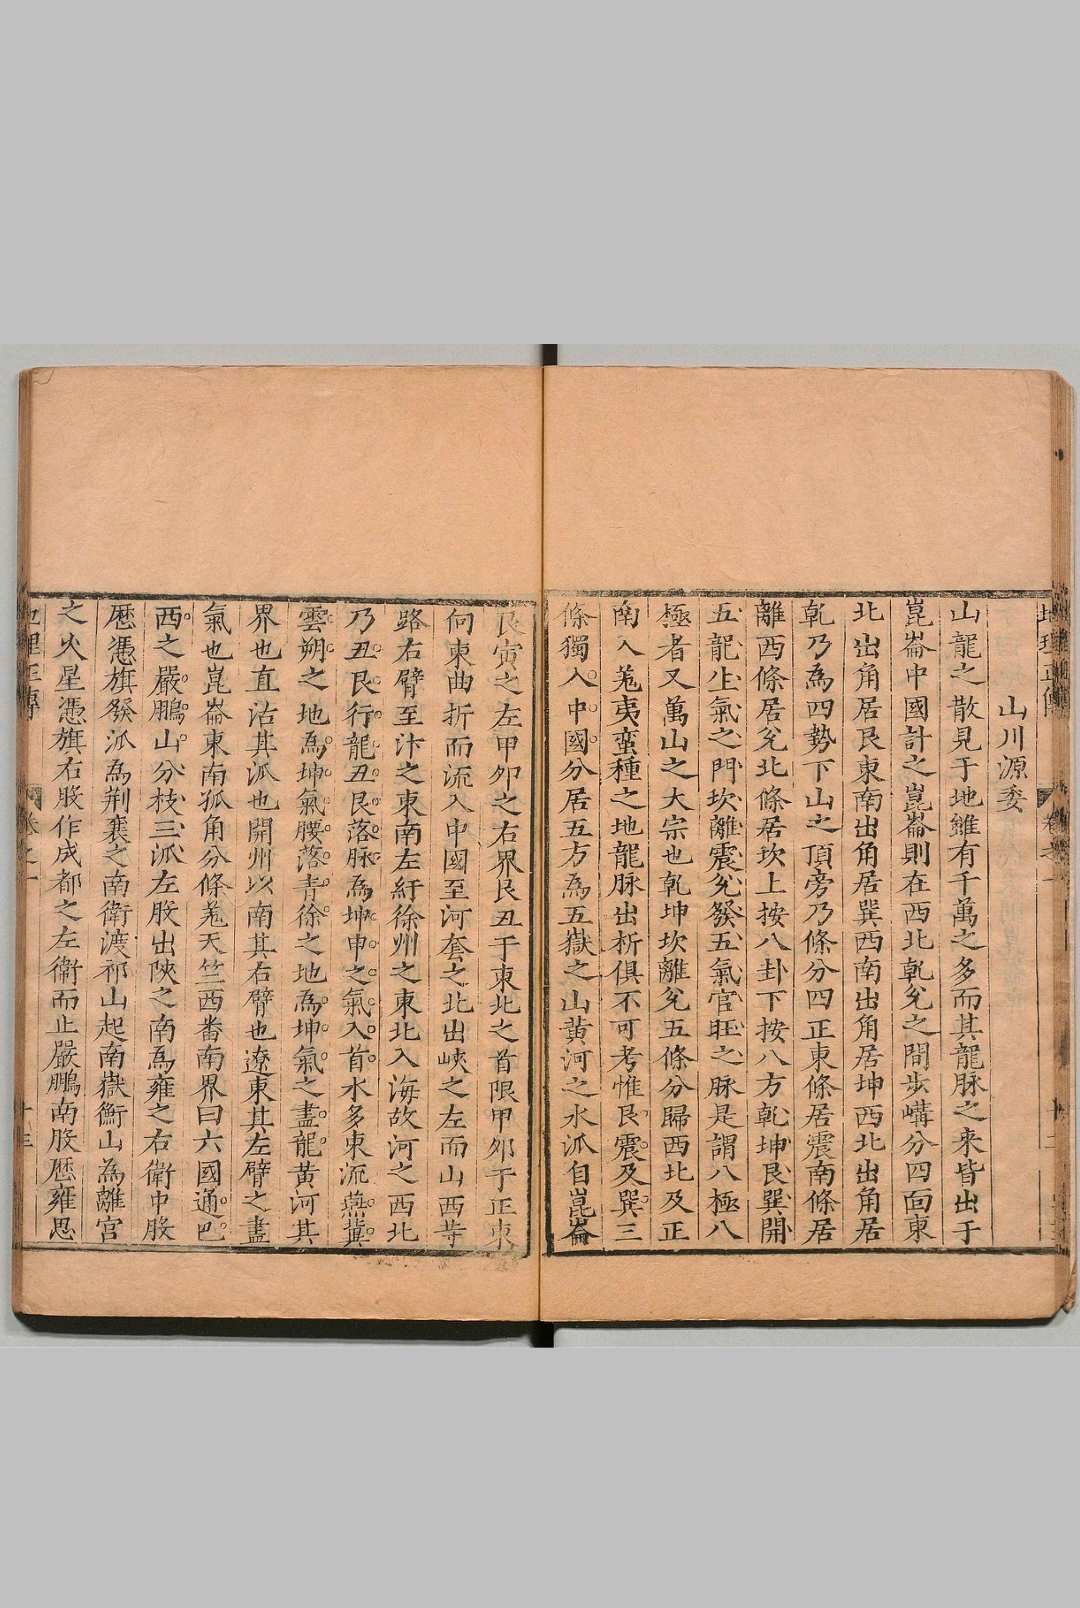 山川源委
山龍之散見于地雖有千萬之多而其龍脉之來皆出于
崑崙中國計之崑崙則在西北乾兊之間步嶙分四面東
北出角居艮東南出角居巽西南出角居坤西北出角居
乾乃為四勢下山之頂旁乃條分四正東條居震南條居
離西條居兊北條居坎上按八卦下按八方乾坤艮巽開
五龍出氣之門坎離震兊發五氣官旺之脉是謂八極八
極者又萬山之大宗也乾坤坎離兊五條分歸西北及正
南入羗夷蛮種之地龍脉出析俱不可考惟艮震及巽三
條獨入中國分居五方為五嶽之山黃河之水派自崑崙
艮寅之左甲夘之右界艮丑于東北之首限甲夘于正東
向東曲折而流入中國至河套之北出峽之左而山西等
路右臂至汴之東南左紆徐州之東北入海故河之西北
乃丑艮行龍丑艮落脉為坤申之氣入首水多東流燕冀
雲朔之地為坤氣腰落青徐之地為坤氣之盡龍黃河其
界也直沽其派也開州以南其右臂也遼東其左臂之盡
氣也崑崙東南孤角分條羗天竺西番南界曰六國通巴
西之嚴鵬山分枝三派左股出陝之南為雍之右衛中股
歷憑旗發派為荊襄之南衛渡祁山起南嶽衡山為離宮
之火星憑旗右股作成都之左衛而止嚴鵬南股歷雍恩